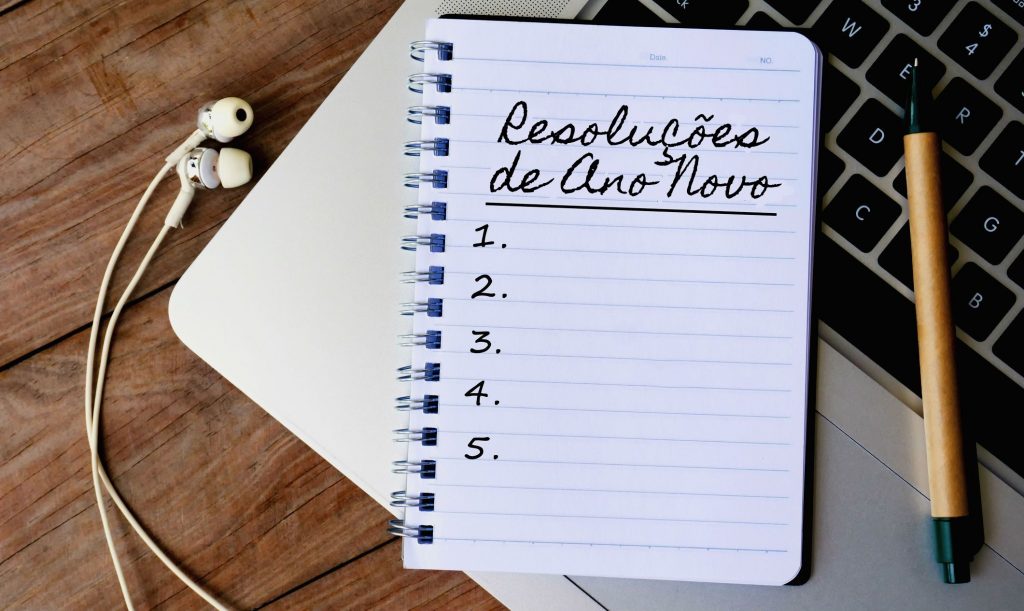 Date.
NO.
Resoluções
de Ano Novo
1.
2.
3.
4.
5.
3
$
4
W
E
R
D
T
C
G
B